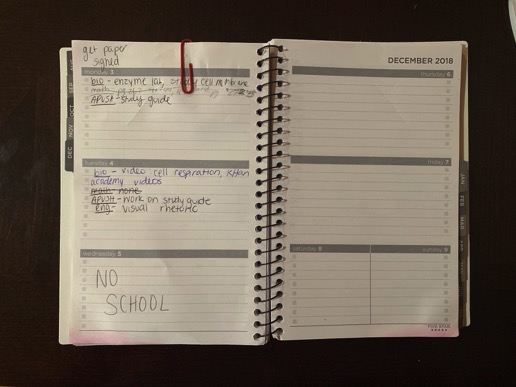 get paper
signed
monday 3
bio - enzyme lab, study cell membrane
math
APUSH - study guide
tuesday 4
bio - video cell respiration, Khan
academy videos
math - none
APUSH - work on study guide
eng - visual rhetoric
wednesday 5
NO
SCHOOL
DEC NOV OCT SEP
DECEMBER 2018
thursday 6
friday 7
saturday 8
sunday 9
JAN FEB MAR
FIVE STAR